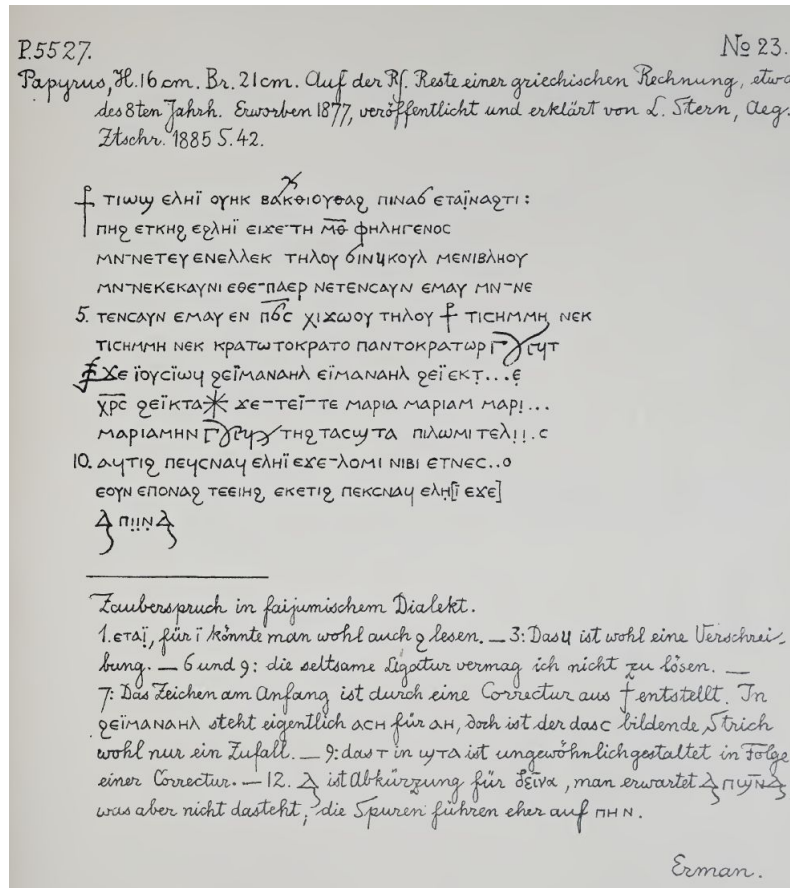 P.5527.
№ 23.
Papyrus, H. 16 cm. Br. 21 cm. Auf der Rſ. Reste einer griechischen Rechnung, etwa
des 8ten Jahrh. Erworben 1877, veröffentlicht und erklärt von L. Stern, Aeg.
Ztschr. 1885 S. 42.
ⲧⲓⲱϣ ⲉⲗⲏⲓ̈ ⲟⲩⲏⲕ ⲃⲁⲕⲑⲓⲟⲩⲑⲁϩ ⲡⲓⲛⲁϭ ⲉⲧⲁⲓ̈ⲛⲁϩⲧⲓ :
ⲡⲏϩ ⲉⲧⲕⲏϩ ⲉϩⲗⲏⲓ̈ ⲉⲓϫⲉ-ⲧⲏ ⲙ̅ⲑ̅ ⲫⲏⲗⲏⲅⲉⲛⲟⲥ
ⲙⲛ-ⲛⲉⲧⲉⲩ ⲉⲛⲉⲗⲗⲉⲕ ⲧⲏⲗⲟⲩ ϭⲓⲛϥⲕⲟⲩⲗ ⲙⲉⲛⲓⲃⲗⲏⲟⲩ
ⲙⲛ-ⲛⲉⲕⲉⲕⲁⲩⲛⲓ ⲉⲑⲉ-ⲡⲁⲉⲣ ⲛⲉⲧⲉⲛⲥⲁⲩⲛ ⲉⲙⲁⲩ ⲙⲛ-ⲛⲉ
5. ⲧⲉⲛⲥⲁⲩⲛ ⲉⲙⲁⲩ ⲉⲛ ⲡ̅ϭ̅ⲥ̅ ϫⲓϫⲱⲟⲩ ⲧⲏⲗⲟⲩ ⳨ ⲧⲓⲥⲏⲙⲙⲏ ⲛⲉⲕ
ⲧⲓⲥⲏⲙⲙⲏ ⲛⲉⲕ ⲕⲣⲁⲧⲱⲧⲟⲕⲣⲁⲧⲟ ⲡⲁⲛⲧⲟⲕⲣⲁⲧⲱⲣ
ϫⲉ ⲓ̈ⲟⲩⲥⲓ̈ⲱϥ ϩⲉⲓ̈ⲙⲁⲛⲁⲏⲗ ⲉⲓ̈ⲙⲁⲛⲁⲏⲗ ϩⲉⲓ̈ ⲉⲕⲧ...ⲉ
ⲭ̅ⲣ̅ⲥ̅ ϩⲉⲓ̈ⲕⲧⲁ ϫⲉ-ⲧⲉⲓ̈-ⲧⲉ ⲙⲁⲣⲓⲁ ⲙⲁⲣⲓⲁⲙ ⲙⲁⲣⲓ...
ⲙⲁⲣⲓⲁⲙⲏⲛ ⲧⲏϩ ⲧⲁⲥϣⲧⲁ ⲡⲓⲗⲱⲙⲓ ⲧⲉⲗ!!.ⲥ
10. ⲁϥⲧⲓϩ ⲡⲉϥⲥⲛⲁϥ ⲉⲗⲏⲓ̈ ⲉϫⲉ-ⲗⲟⲙⲓ ⲛⲓⲃⲓ ⲉⲧⲛⲉⲥ..ⲟ
ⲉⲟⲩⲛ ⲉⲡⲟⲛⲁϩ ⲧⲉⲉⲓⲏϩ ⲉⲕⲉⲧⲓϩ ⲡⲉⲕⲥⲛⲁϥ ⲉⲗⲏ[ⲓ̈ ⲉϫⲉ]
Zauberspruch in faijumischem Dialekt.
1. ⲉⲧⲁⲓ̈, für ⲓ̈ könnte man wohl auch ϩ lesen. — 3: Das ϥ ist wohl eine Verschrei-
bung. — 6 und 9: die seltsame Ligatur vermag ich nicht zu lösen. —
7: Das Zeichen am Anfang ist durch eine Correctur aus ⳨ entstellt. In
ϩⲉⲓ̈ⲙⲁⲛⲁⲏⲗ steht eigentlich ⲁⲥⲏ für ⲁⲏ, doch ist der das ⲥ bildende Strich
wohl nur ein Zufall. — 9: das ⲧ in ϣⲧⲁ ist ungewöhnlich gestaltet in Folge
einer Correctur. — 12. ist Abkürzung für δεῖνα, man erwartet
was aber nicht dasteht; die Spuren führen eher auf ⲡⲏⲛ.
Erman.